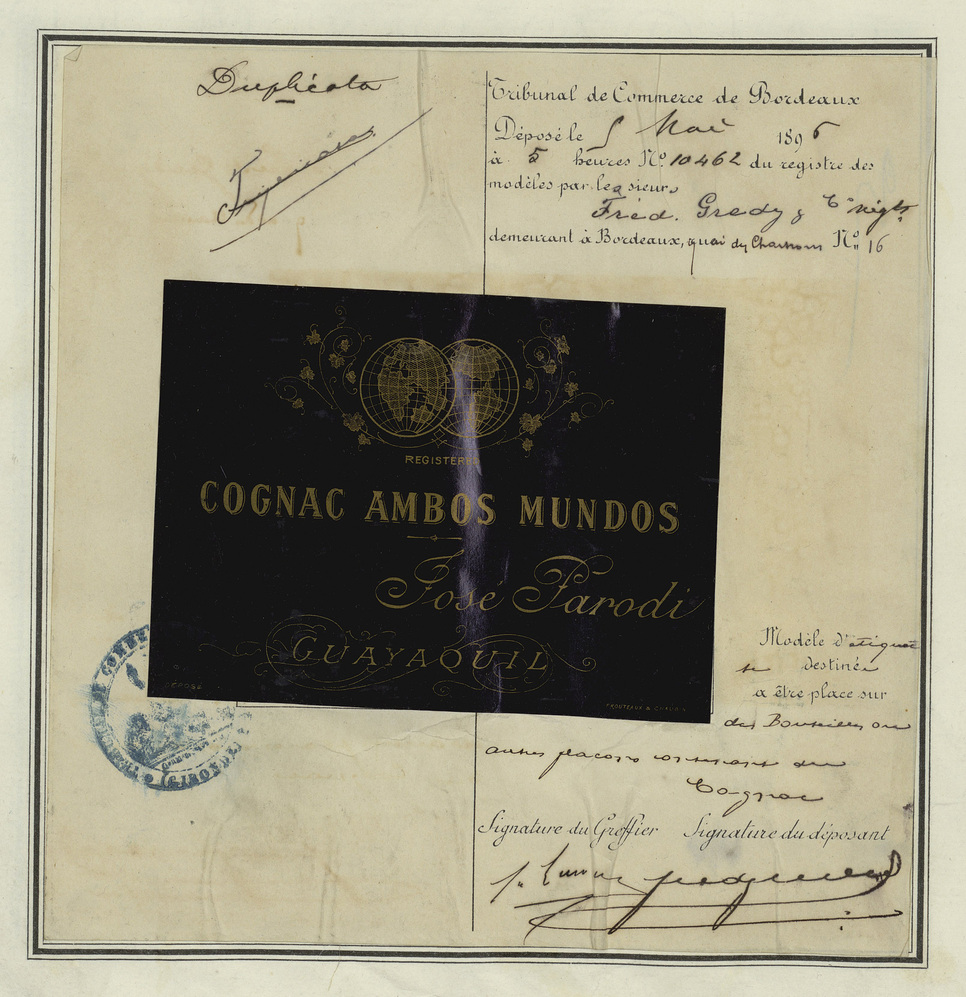 Duplicata
Tribunal de Commerce de Bordeaux
Déposé le 5 Mai 1896
à 5 heures Nº 10462 du registre des
modèles par les sieurs
Fréd. Gredy & Cº négts
demeurant à Bordeaux, quai des Chartrons Nº 16
REGISTERED
COGNAC AMBOS MUNDOS
José Parodi
GUAYAQUIL
DÉPOSÉ
TROUTEAUX & CHAUVIN
TRIBUNAL DE COMMERCE
(GIRONDE)
Modèle d'étiquette
destinée
a être place sur
des Bouteilles ou
autres flacons contenant du
Cognac
Signature du Greffier Signature du déposant